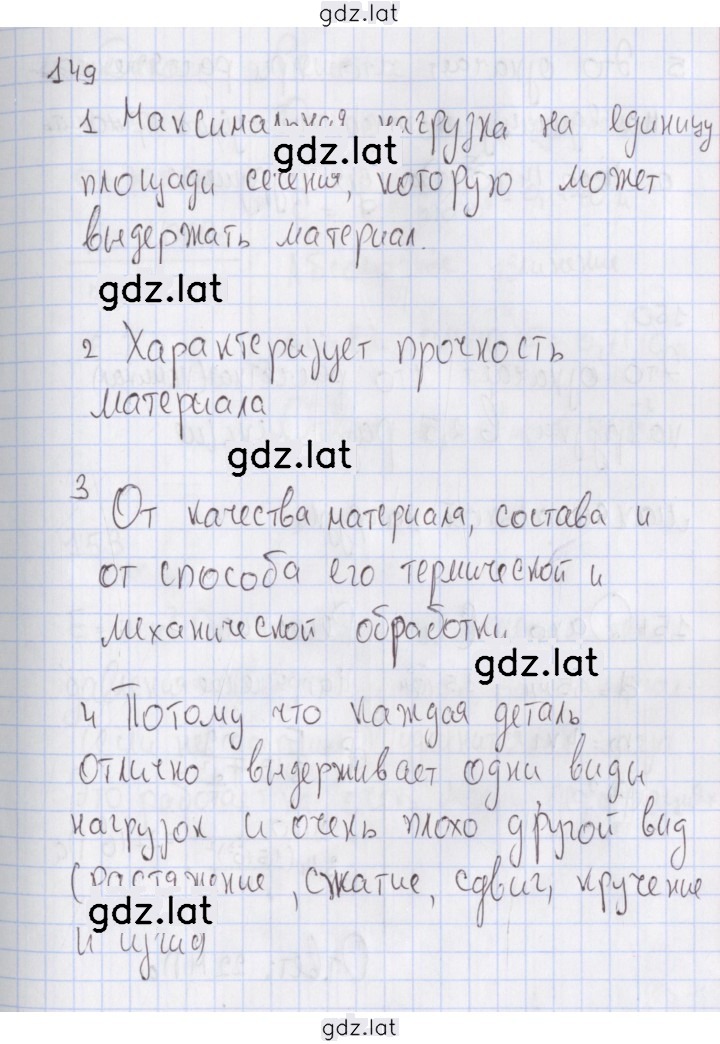 gdz.lat
149
1 Максимальная нагрузка на единицу
gdz.lat
площади сечения, которую может
выдержать материал.
gdz.lat
2 Характеризует прочность
материала
gdz.lat
3 От качества материала, состава и
от способа его термической и
механической обработки
gdz.lat
4 Потому что каждая деталь
отлично выдерживает одни виды
нагрузок и очень плохо другой вид
(растяжение, сжатие, сдвиг, кручение
gdz.lat
и
gdz.lat